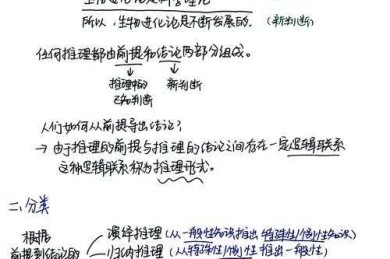 所以，生物进化论是不断发展的.（新判断）
任何推理都由前提和结论两部分组成。
推理中的 新判断
已知判断
人们如何从前提导出结论？
→ 由于推理的前提与推理的结论之间存在一定逻辑联系
这种逻辑联系称为推理形式。
二、分类
根据 演绎推理（从一般性知识推出特殊性/个别性知识）
前提到结论的 归纳推理（从特殊性/个别性推出一般性）